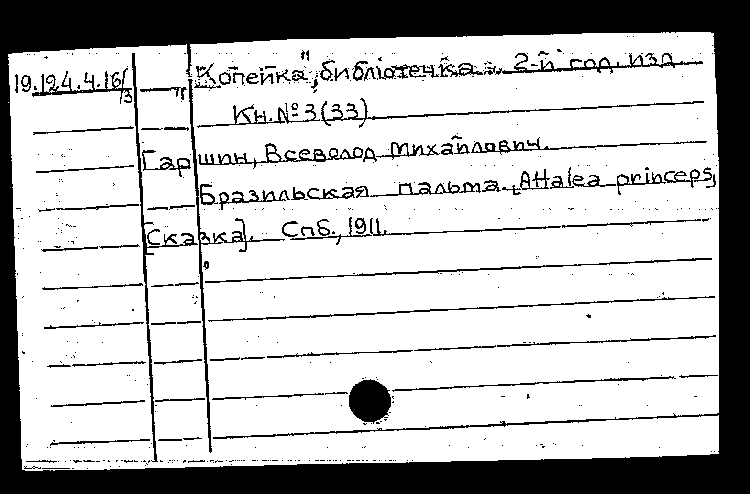 19.124.4.16/3 "Копейка", библiотечка. 2-й год. изд.
Кн. № 3(33).
Гаршин, Всеволод Михайлович.
Бразильская пальма. [Attalea princeps,
[Сказка]. Спб., 1911.